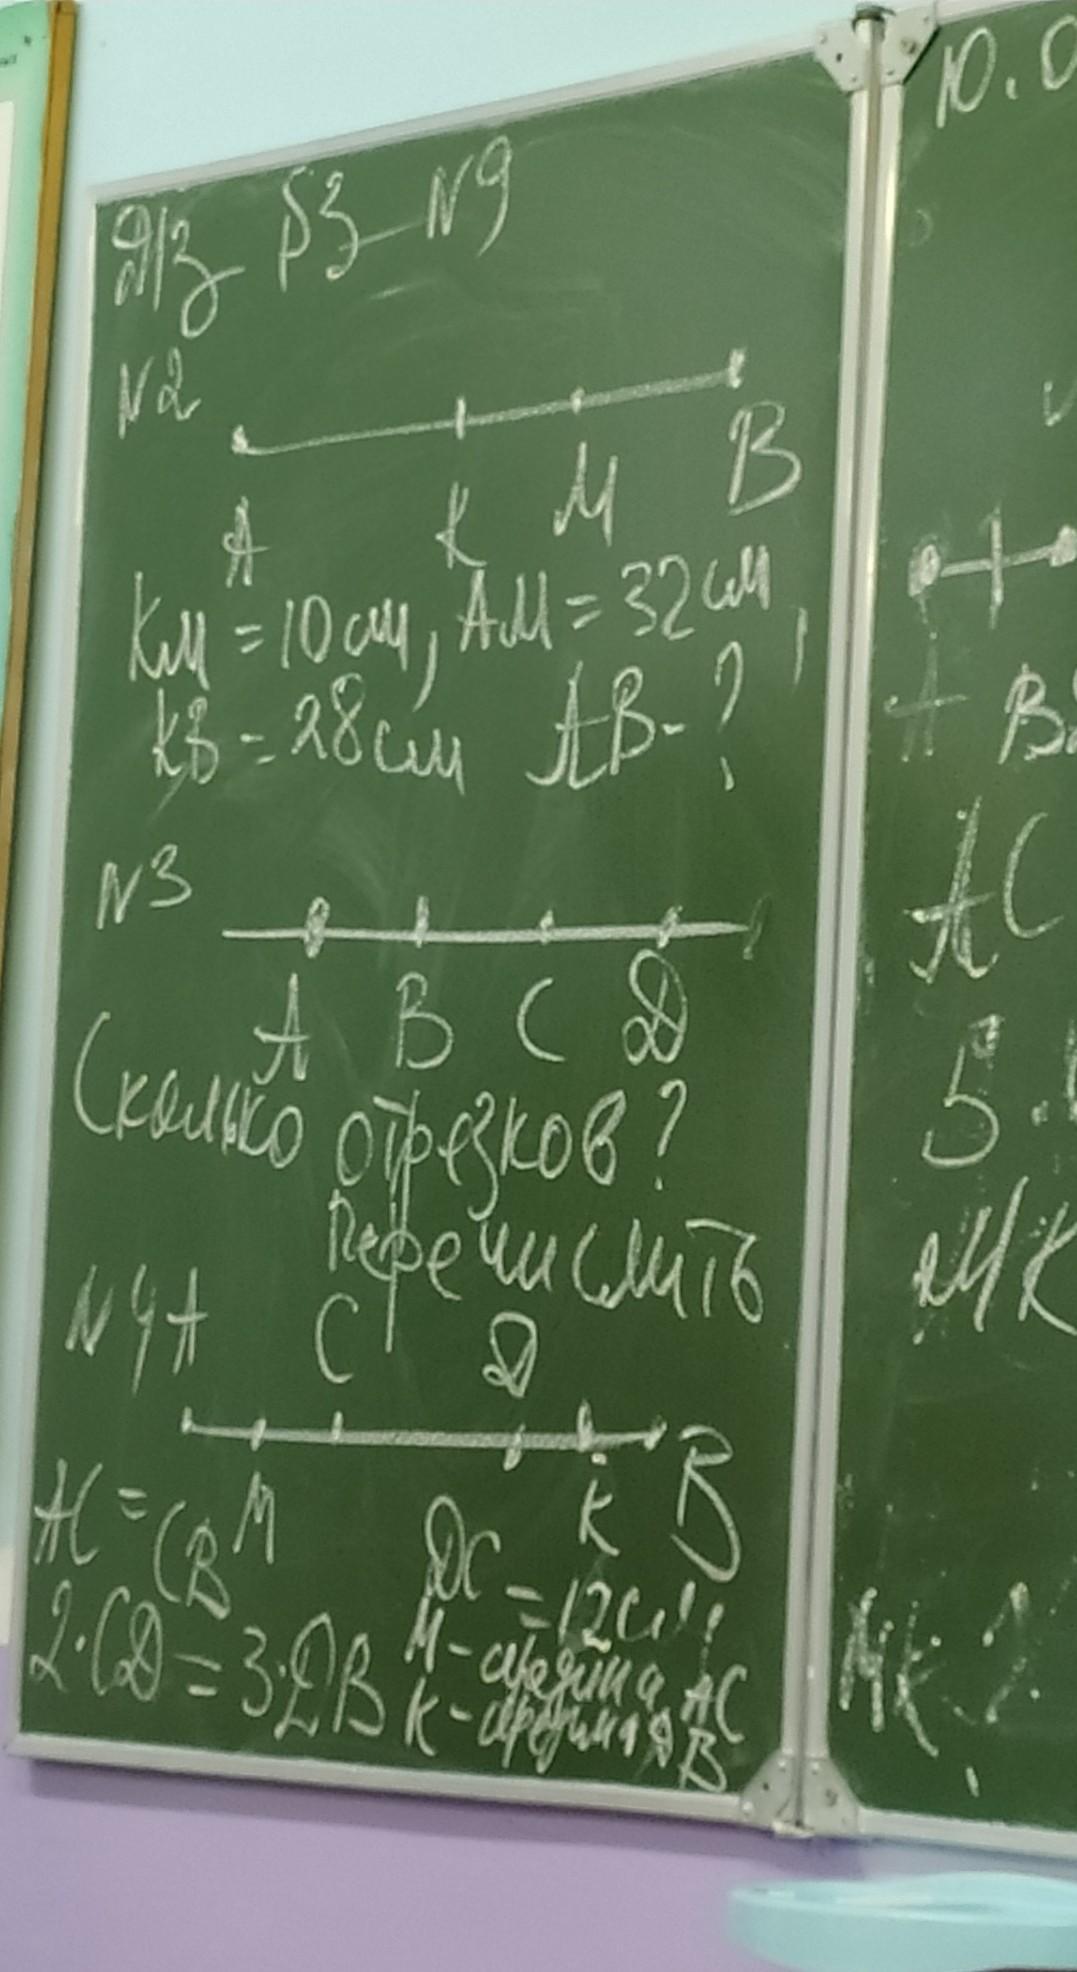 Д/з β3 N9
N2
A K M B
KM = 10 см, AM = 32 см,
KB = 28 см AB - ?
N3
A B C D
Сколько отрезков?
Перечислить
N4 A C D
M K B
AC = CB
DC = 12 см
2·CD = 3·DB
M - середина AC
K - середина DB
10.0
A B
AC
5.
MK
MK - ?